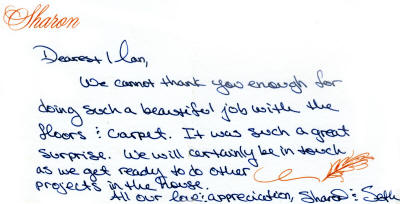 Sharon
Dearest Ilan,
We cannot thank you enough for
doing such a beautiful job with the
floors & carpet. It was such a great
surprise. We will certainly be in touch
as we get ready to do other
projects in the house.
All our love & appreciation, Sharon & Seth